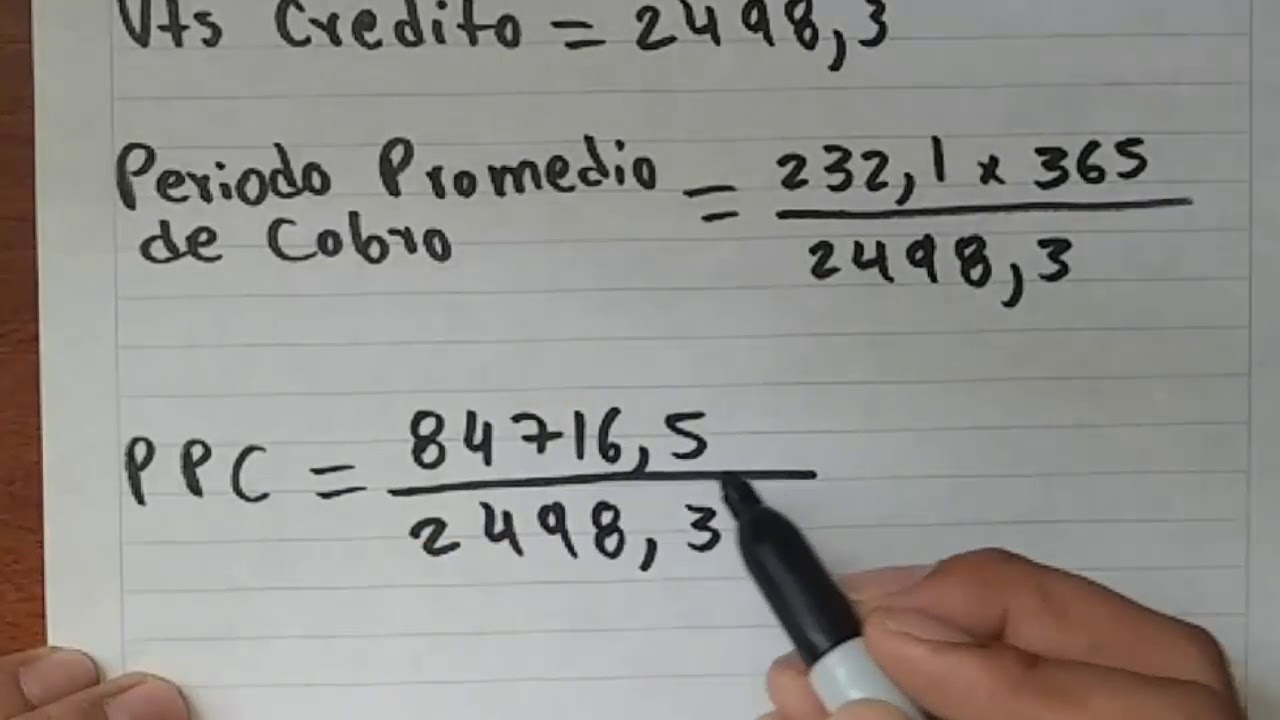 Vts Credito = 2498,3
Periodo Promedio = 232,1 x 365
de Cobro 2498,3
PPC = 84716,5
2498,3